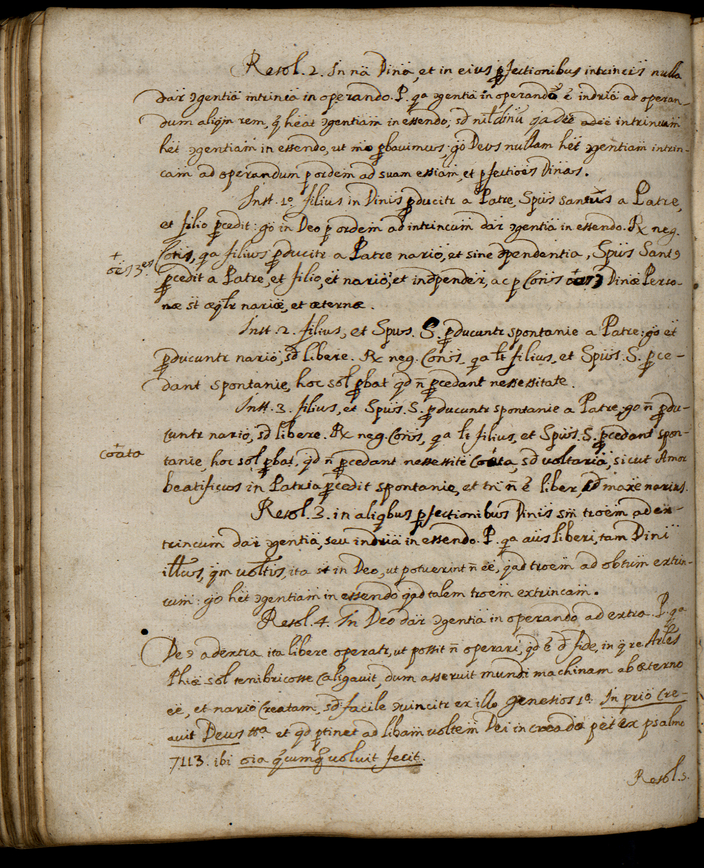 Resol. 2. In nā Dinā, et in eius pfectionibus intrincis nulla
dar ɔgentia intrinca in operando. P. qa ɔgentia in operando ē indria ad operan-
dum aliqm rem, q̄ heat ɔgentiam in essendo; sd nil intrincum
het ɔgentiam in essendo, ut mō pbavimus; go Deus nullam het ɔgentiam intrin-
cam ad operandum p ordem ad suam essiam, et pfectiones Dinas.
Inst. 1º. filius in Dinis pducitr a Patre, Spūs santus a Patre,
et filio pcedit: go in Deo p ordem ad intrincum dar ɔgentia in essendo. Rx neg.
Conis, qa filius pducitr a Patre nario, et sine dpendentia, Spūs Santꝯ
pcedit a Patre, et filio, et nario, et indpender, ac p Conis Dinæ Perso-
næ st æqlr nariæ, et æternæ.
Inst. 2. filius, et Spus. S. pducuntr spontanie a Patre: go et
pducuntr nario, sd libere. Rx neg. Conis, qa lt filius, et Spūs. S. pce-
dant spontanie, hoc sol pbat qd n̄ pcedant nessessitate.
Inst. 3. filius, et Spūs. S. pducuntr spontanie a Patre, go n̄ pdu-
cuntr nario, sd libere. Rx neg. Conis, qa lt filius, et Spūs. S. pcedant spon-
coata
tanie, hoc sol pbat, qd n̄ pcedant nessessite Coata, sd voltaria, sicut Amor
beatificus in Patria pcedit spontanie, et tn n̄ ē liber, sd maxe narius.
Resol. 3. in aliqbus pfectionibus Dinis sm troem ad ex-
trincum dar ɔgentia, seu indria in essendo. P. qa aūs liberi, tam Dini
illcus, qm voltis, ita st in Deo, ut potuerint n̄ ēē, qad troem ad obtum extrin-
cum: go het ɔgentiam in essendo qad talem troem extrincam.
Resol. 4. In Deo dar ɔgentia in operando ad extra. P. qa
Deꝯ ad extra ita libere operatr, ut possit n̄ operari, qd ē d fide, in qre Artles
Phiæ sol tenibricosse Caligavit, dum asseruit mundi machinam ab æterno
ēē, et nario Creatam, sd facile ɔvincitr ex illo genesios 1ª. In prio Cre-
avit Deus et qd ptinet ad libam voltem Dei in creado pet ex psalmo
7113. ibi oīa qcumq voluit fecit.
Resol. 5.